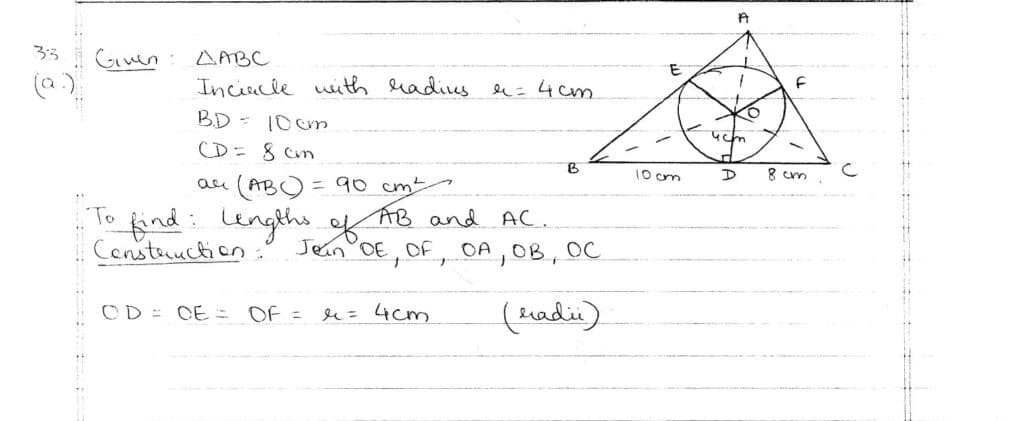 33
(a.)
Given : △ABC
Incircle with radius r = 4cm
BD = 10cm
CD = 8 cm
ar (ABC) = 90 cm²
To find : lengths of AB and AC.
Construction : Join OE, OF, OA, OB, OC
OD = OE = OF = r = 4cm (radii)
A
E
F
O
4cm
B
10 cm
D
8 cm
C